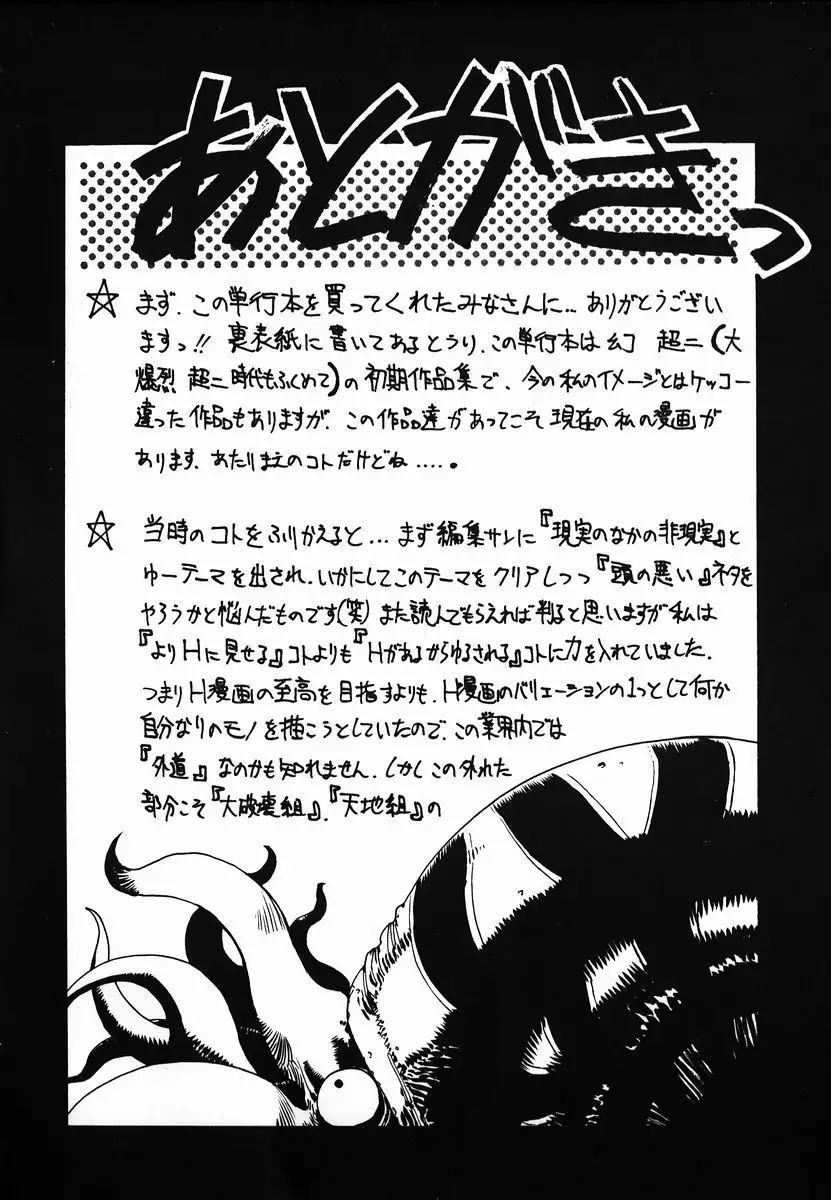 あとがきっ
☆ まず、この単行本を買ってくれたみなさんに…ありがとうござい
ますっ!! 裏表紙に書いてあるとうり、この単行本は幻 超二(大
爆烈 超二時代もふくめて)の初期作品集で、今の私のイメージとはケッコー
違った作品もありますが、この作品達があってこそ現在の私の漫画が
あります、あたりまえのコトだけどね……。
☆ 当時のコトをふりかえると…まず編集サンに『現実のなかの非現実』と
ゆーテーマを出され、いかにしてこのテーマをクリアしつつ『頭の悪い』ネタを
やろうかと悩んだものです(笑) また読んでもらえれば判ると思いますが私は
『よりHに見せる』コトよりも『Hがあるからゆるされる』コトに力を入れていました。
つまりH漫画の至高を目指すよりも、H漫画のバリエーションの1つとして何か
自分なりのモノを描こうとしていたので、この業界内では
『外道』なのかも知れません。しかしこの外れた
部分こそ『大破壊組』、『天地組』の